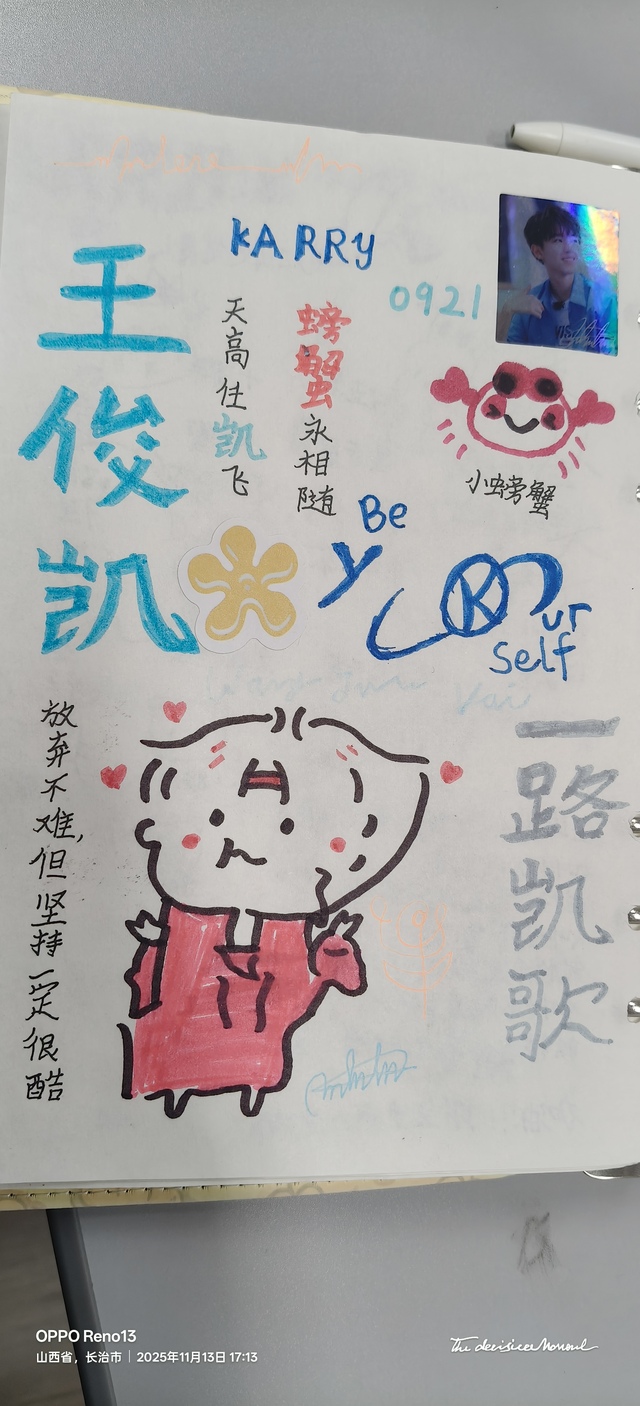 KARRY
0921
王俊凯
天高任凯飞
螃蟹永相随
小螃蟹
Be
Your
self
放弃不难，但坚持一定很酷
一路凯歌
OPPO Reno13
山西省，长治市 | 2025年11月13日 17:13